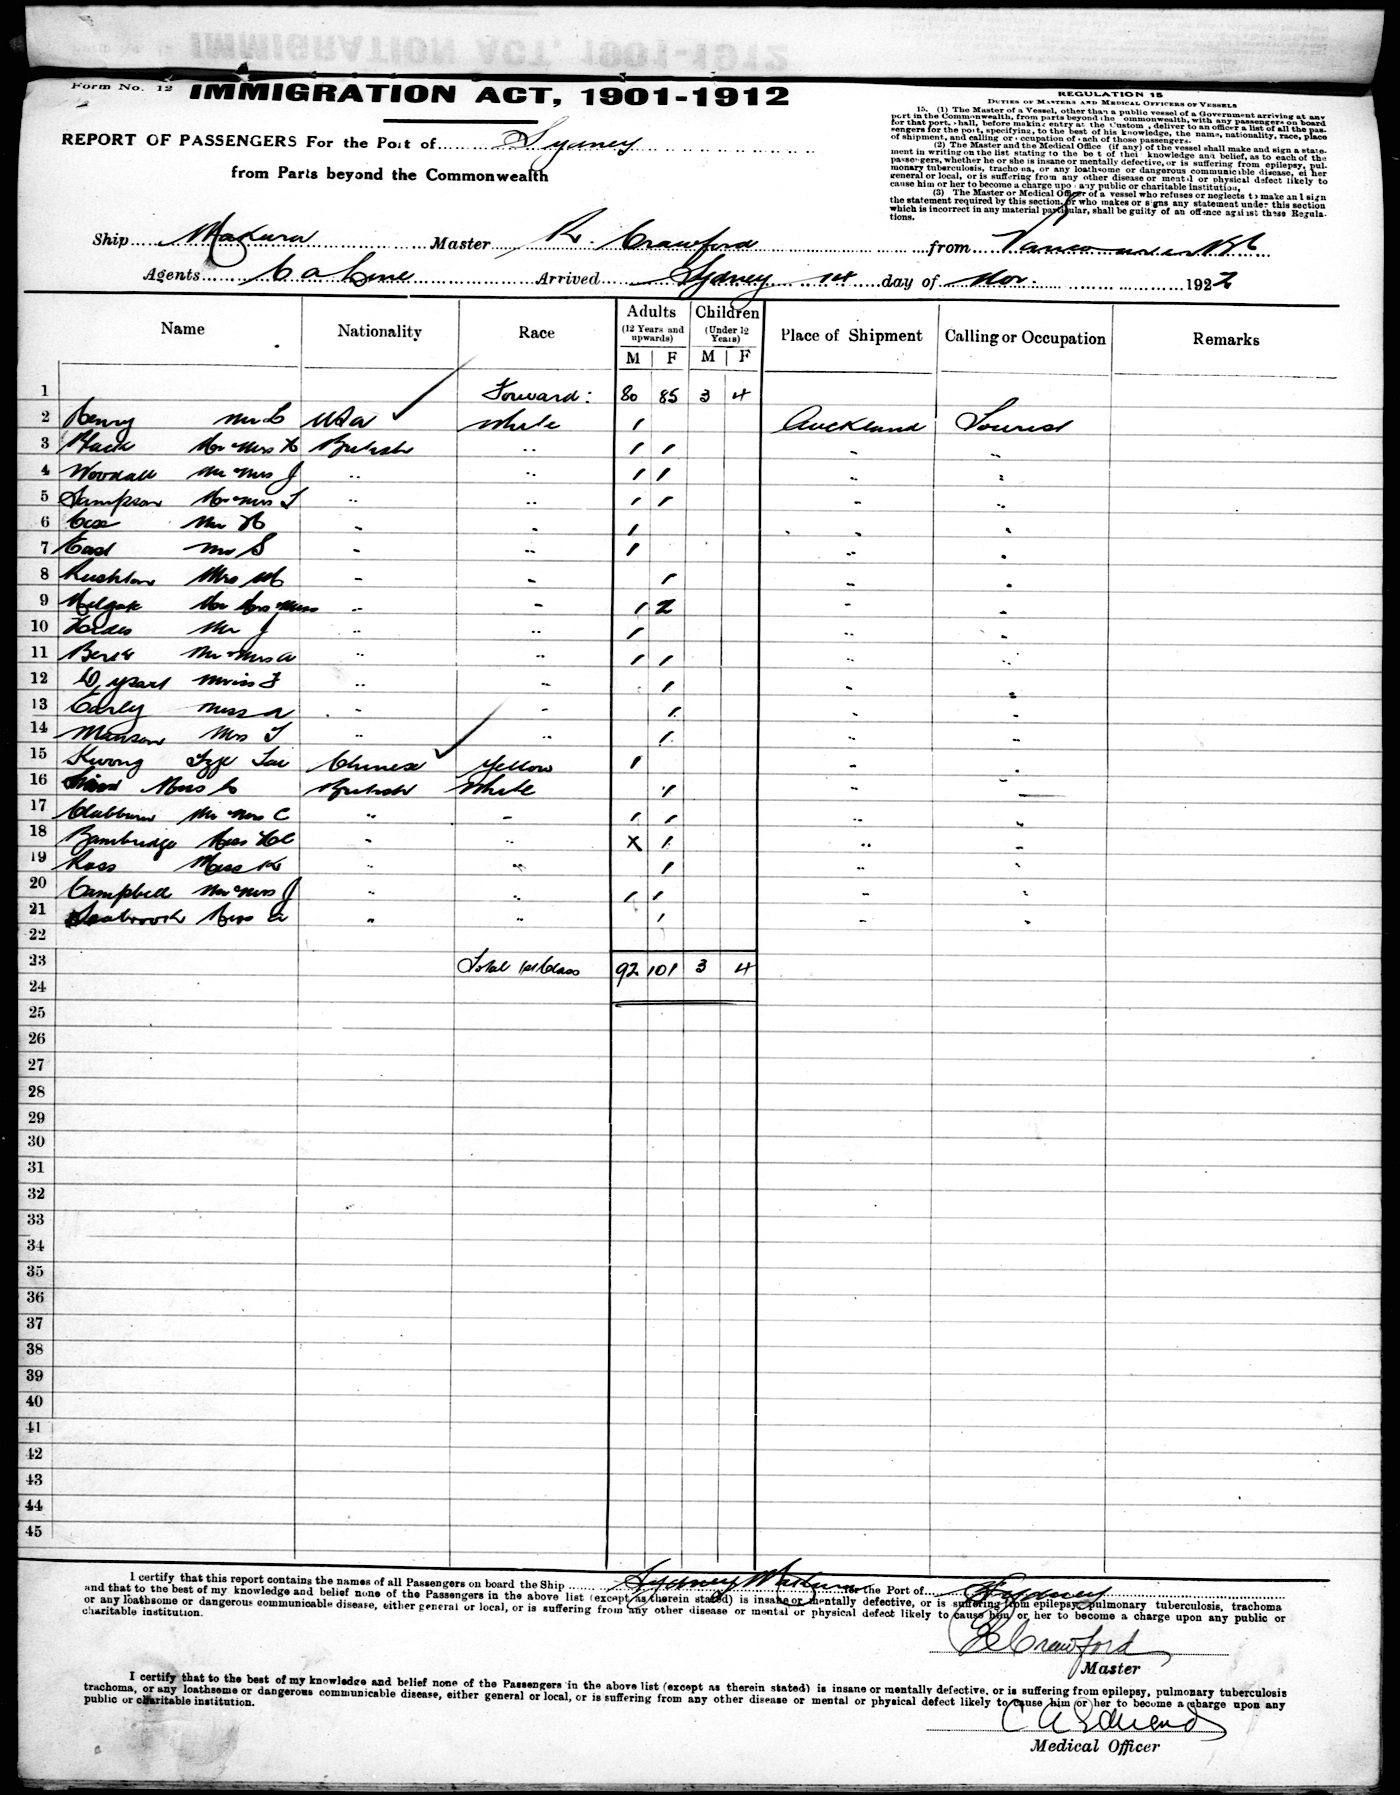 Form No. 12
IMMIGRATION ACT, 1901-1912
REPORT OF PASSENGERS For the Port of Sydney
from Parts beyond the Commonwealth
REGULATION 15
DUTIES OF MASTERS AND MEDICAL OFFICERS OF VESSELS
15. (1) The Master of a Vessel, other than a public vessel of a Government arriving at any
port in the Commonwealth, from parts beyond the ommonwealth, with any passengers on board
for that port, shall, before making entry at the Custom, deliver to an officer a list of all the pas-
sengers for the port, specifying, to the best of his knowledge, the name, nationality, race, place
of shipment, and calling or occupation of each of those passengers.
(2) The Master and the Medical Office (if any) of the vessel shall make and sign a state-
ment in writing on the list stating to the best of their knowledge and belief, as to each of the
passengers, whether he or she is insane or mentally defective, or is suffering from epilepsy, pul-
monary tuberculosis, trachoma, or any loathsome or dangerous communicable disease, either
general or local, or is suffering from any other disease or mental or physical defect likely to
cause him or her to become a charge upon any public or charitable institution.
(3) The Master or Medical Officer of a vessel who refuses or neglects to make and sign
the statement required by this section, or who makes or signs any statement under this section
which is incorrect in any material particular, shall be guilty of an offence against these Regula-
tions.
Ship Makura Master R. Crawford from Vancouver
Agents Arrived Sydney day of Nov. 1922
Name Nationality Race Adults (12 Years and upwards) M F Children (Under 12 Years) M F Place of Shipment Calling or Occupation Remarks
1 Forward: 80 85 3 4
2 Henry Mr USA White 1 Auckland Tourist
3 Black Mr Mrs British " 1 1 " "
4 Woodall Mr Mrs J " " 1 1 " "
5 Sampson Mr Mrs " " 1 1 " "
6 Cox Mr " " 1 " "
7 East Mr S " " 1 " "
8 Rushton Mrs " " 1 " "
9 Mr Mrs Miss " " 1 2 " "
10 Mr J " " 1 " "
11 Mr Mrs A " " 1 1 " "
12 Miss " " 1 " "
13 Early Miss A " " 1 " "
14 Manson Mrs " " 1 " "
15 Kwong Chinese Yellow 1 " "
16 Miss British White 1 " "
17 Clabburn Mr Mrs C " " 1 1 " "
18 Bambridge Miss " " X 1 " "
19 Ross Miss K " " 1 " "
20 Campbell Mr Mrs J " " 1 1 " "
21 Seabrook Miss " " 1 " "
22
23 Total 1st Class 92 101 3 4
24
25
26
27
28
29
30
31
32
33
34
35
36
37
38
39
40
41
42
43
44
45
I certify that this report contains the names of all Passengers on board the Ship Makura for the Port of Sydney
and that to the best of my knowledge and belief none of the Passengers in the above list (except as therein stated) is insane or mentally defective, or is suffering from epilepsy, pulmonary tuberculosis, trachoma
or any loathsome or dangerous communicable disease, either general or local, or is suffering from any other disease or mental or physical defect likely to cause him or her to become a charge upon any public or
charitable institution.
Crawford
Master
I certify that to the best of my knowledge and belief none of the Passengers in the above list (except as therein stated) is insane or mentally defective, or is suffering from epilepsy, pulmonary tuberculosis
trachoma, or any loathsome or dangerous communicable disease, either general or local, or is suffering from any other disease or mental or physical defect likely to cause him or her to become a charge upon any
public or charitable institution.
C A Edmends
Medical Officer